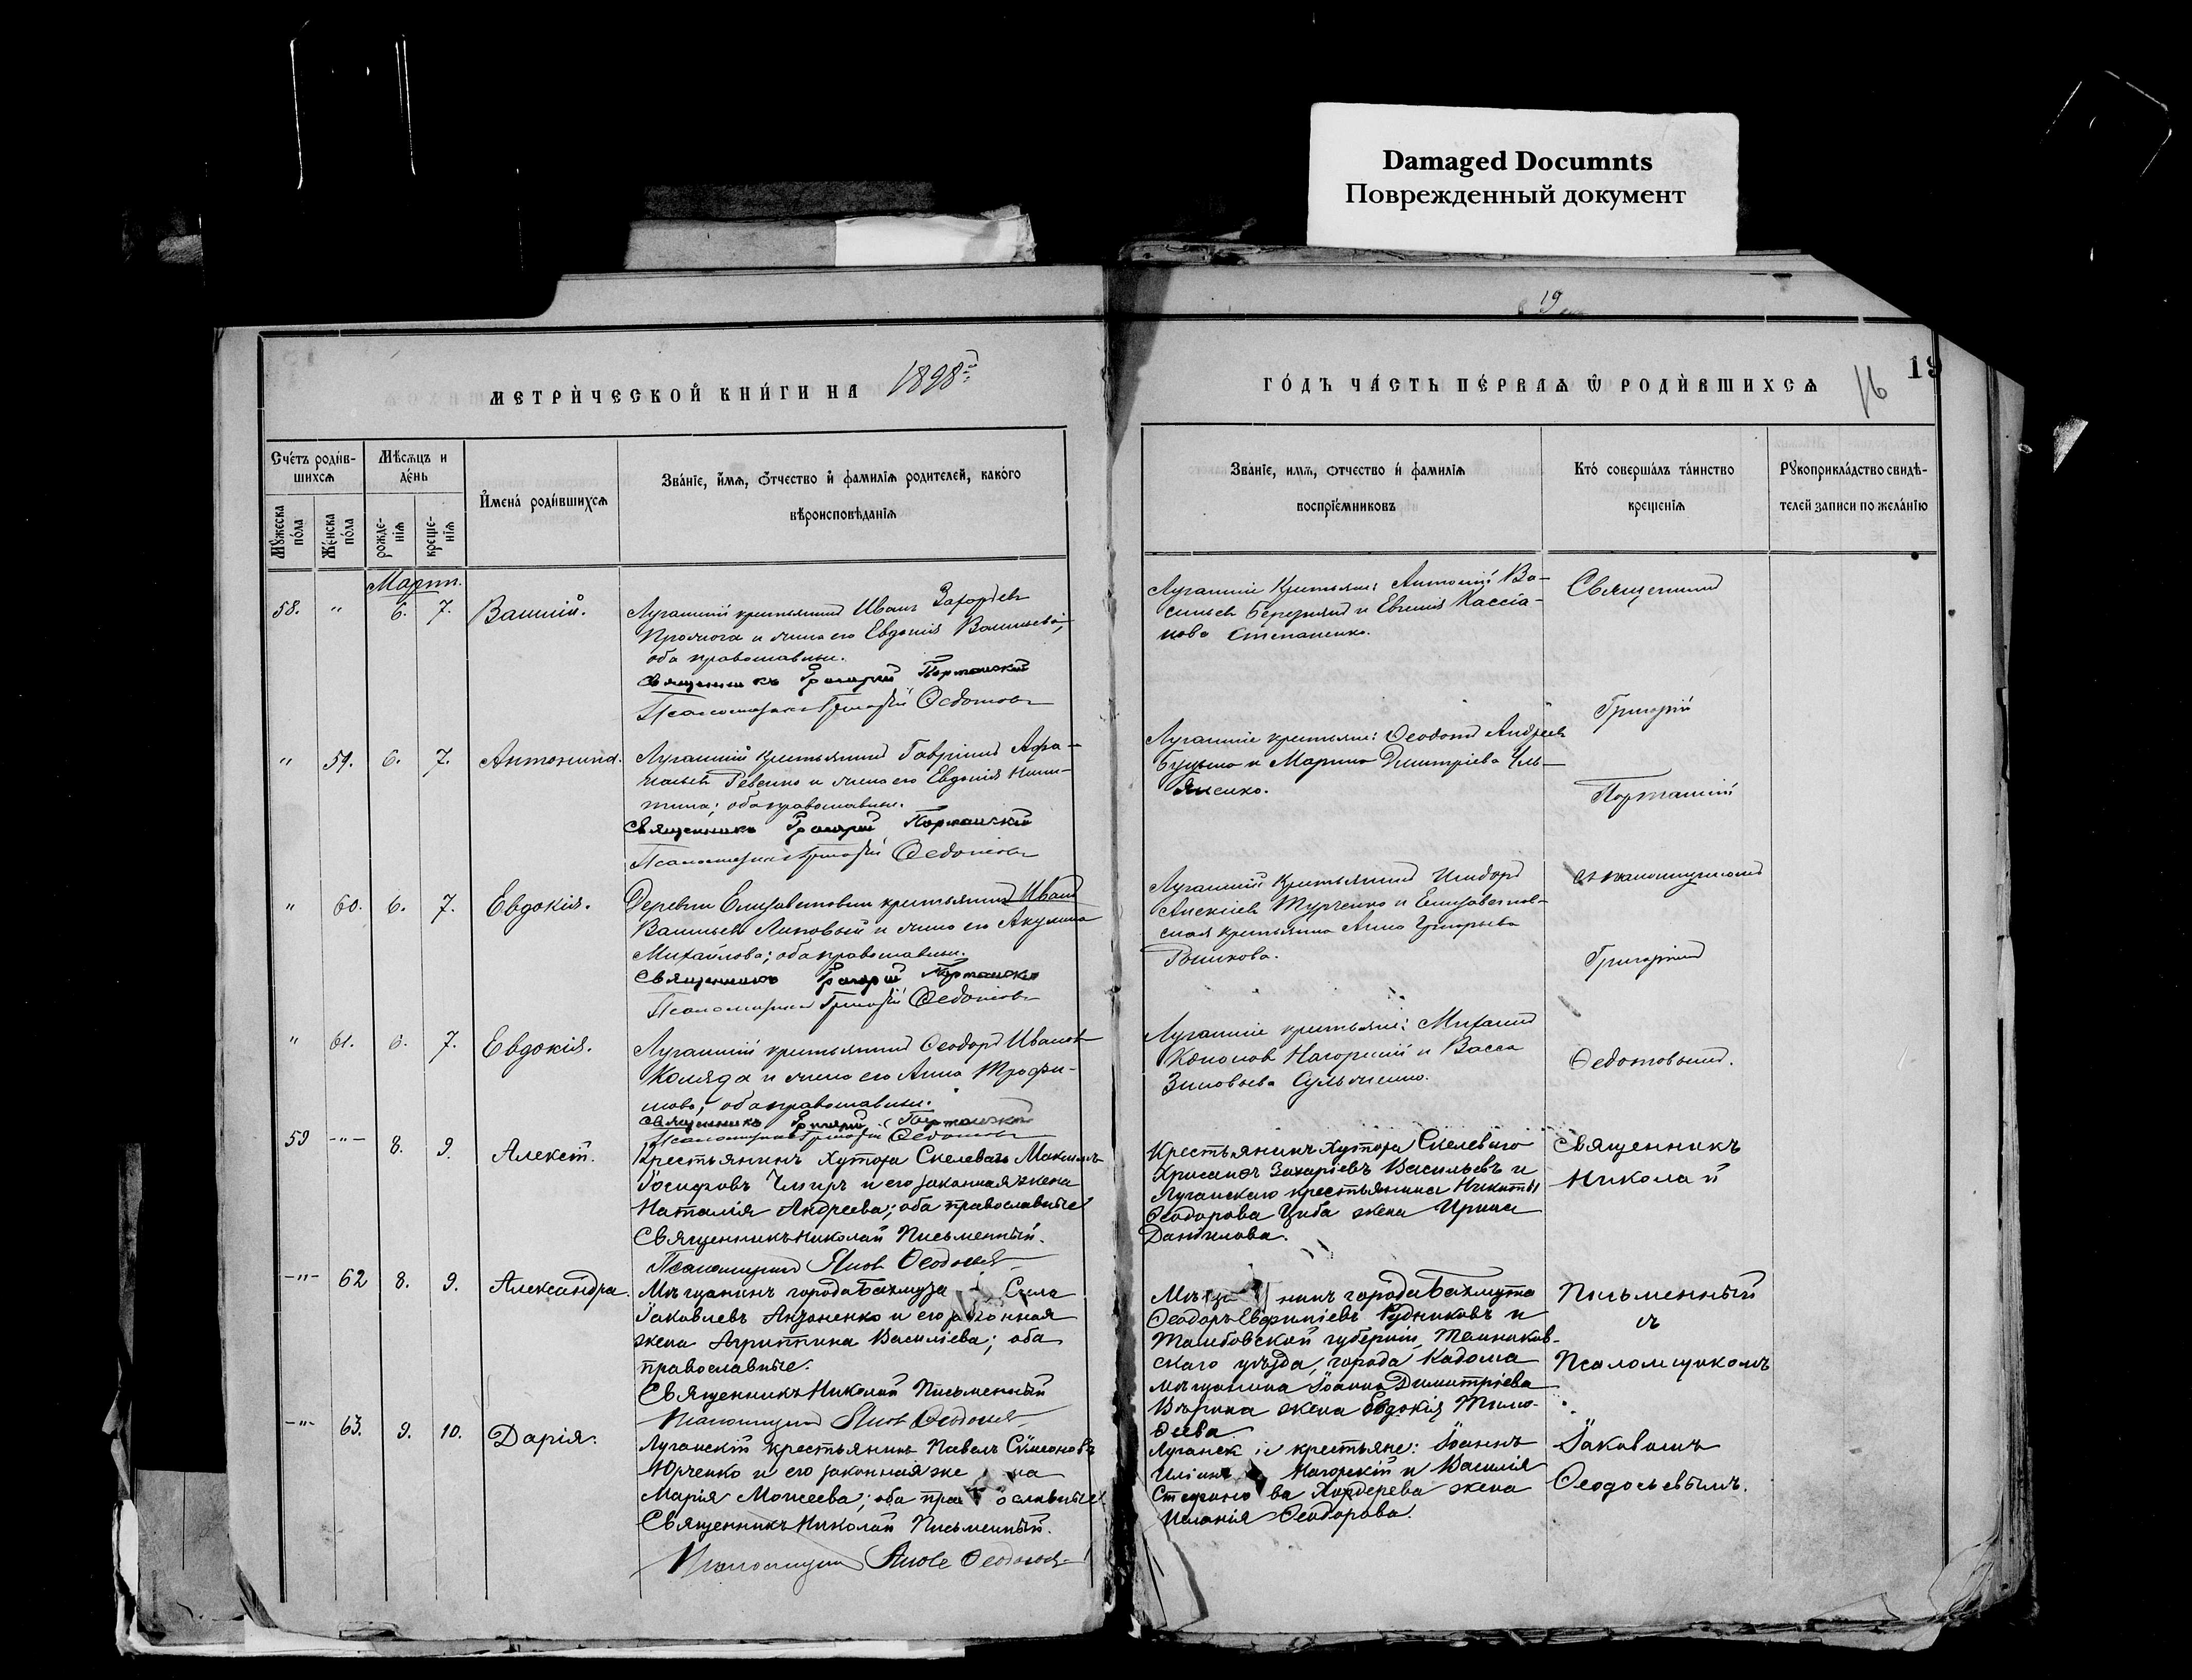 Damaged Documnts
Поврежденный документ
19
19
16
МЕТРИ́ЧЕСКОЙ КНИ́ГИ НА 1898
ГО́ДЪ ЧА́СТЬ ПЕ́РВАѦ Ѡ҆ РОДИ́ВШИХСѦ
Сче́тъ роди́в-
шихсѧ
Мꙋ́жеска по́ла
Же́нска по́ла
Мѣ́сѧцъ и де́нь
рожде-
нїѧ
креще-
нїѧ
И҆мена̀ роди́вшихсѧ
Зва́нїе, и҆́мѧ, ѻ҆́тчество и҆ фами́лїѧ роди́телей, како́го
вѣроисповѣ́данїѧ
Зва́нїе, имѧ, ѻтчество и҆ фами́лїѧ
воспрїе́мниковъ
Кто̀ соверша́лъ та́инство
креще́нїѧ
Рꙋкоприкла́дство свидѣ́-
телей записи по жела́нїю
Мартъ.
58. " 6. 7. Василій.
Луганскій крестьянинъ Иванъ Захаріевъ
и жена его Евдокія Васильева,
оба православные.
Священникъ Григорій Портанскій
Псаломщикъ Григорій Ѳедотовъ
Луганскіе крестьяне: Антоній Ва-
сильевъ и Евгенія Кассіа-
нова Степаненко.
Священникъ
Григорій
" 59. 6. 7. Антонина.
Луганскій крестьянинъ Гавріилъ
Ревенко и жена его Евдокія Ники-
тина; оба православные.
Священникъ Григорій Портанскій
Псаломщикъ Григорій Ѳедотовъ
Луганскіе крестьяне: Ѳеодотъ Андреевъ
и Марина Димитріева Уль-
яненко.
Портанскій
" 60. 6. 7. Евдокія.
Деревни Елизаветовки крестьянинъ Иванъ
Васильевъ Липовый и жена его Акулина
Михайлова; оба православные.
Священникъ Григорій Портанскій
Псаломщикъ Григорій Ѳедотовъ
Луганскій крестьянинъ Исидоръ
Алексіевъ Турченко и Елизаветов-
ская крестьянка Анна Григорьева
съ псаломщикомъ
Григоріемъ
" 61. 6. 7. Евдокія.
Луганскій крестьянинъ Ѳеодоръ Ивановъ
Коляда и жена его Анна Трофи-
мова; оба православные.
Священникъ Григорій Портанскій
Псаломщикъ Григорій Ѳедотовъ
Луганскіе крестьяне: Михаилъ
Кононовъ Нагорскій и Васса
Зиновьева
Ѳедотовымъ.
59 -"- 8. 9. Алексій.
Крестьянинъ Хутора Скелеваго Максимъ
Іосифовъ Чмиръ и его законная жена
Наталія Андреева; оба православные
Священникъ Николай Письменный.
Псаломщикъ Яковъ Ѳеодосьевъ
Крестьянинъ Хутора Скелеваго
Хрисанѳъ Захаріевъ Васильевъ и
Луганскаго крестьянина Никиты
Ѳеодорова Циба жена Ирина
Данилова.
Священникъ
Николай
-"- 62 8. 9. Александра.
Мѣщанинъ города Бахмута Сила
Іаковлевъ Антоненко и его законная
жена Агриппина Василіева; оба
православные.
Священникъ Николай Письменный
Псаломщикъ Яковъ Ѳеодосьевъ
Мѣщанинъ города Бахмута
Ѳеодоръ Евфиміевъ Рудниковъ и
Тамбовской губерніи, Темников-
скаго уѣзда, города Кадома
мѣщанина Іоанна Димитріева
жена Евдокія Тимо-
ѳеева.
Письменный
съ
Псаломщикомъ
-"- 63. 9. 10. Дарія.
Луганскій крестьянинъ Павелъ Сѵмеоновъ
Юрченко и его законная жена
Марія Моисеева; оба православные
Священникъ Николай Письменный.
Псаломщикъ Яковъ Ѳеодосьевъ
Луганскіе крестьяне: Іоаннъ
Нагорскій и Василія
Стефанова жена
Меланія Ѳеодорова.
Іаковомъ
Ѳеодосьевымъ.